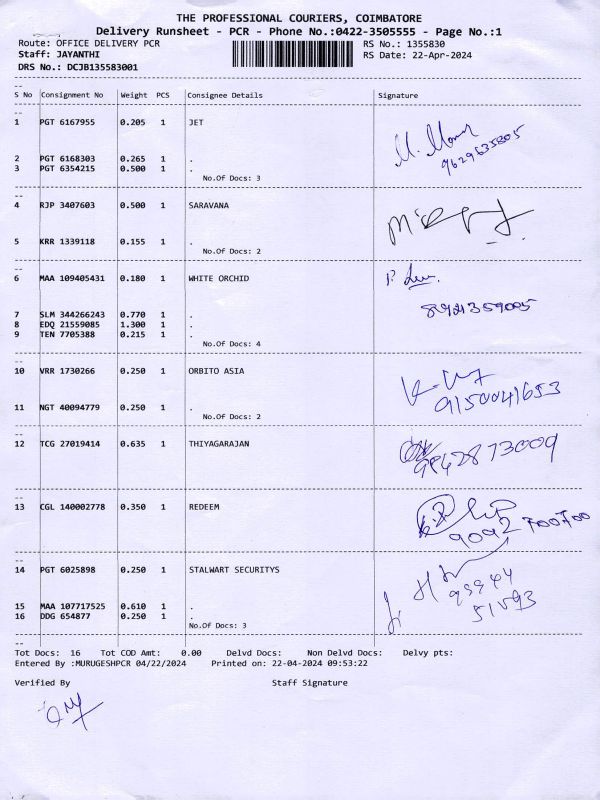 THE PROFESSIONAL COURIERS, COIMBATORE
Delivery Runsheet - PCR - Phone No.:0422-3505555 - Page No.:1
Route: OFFICE DELIVERY PCR RS No.: 1355830
Staff: JAYANTHI RS Date: 22-Apr-2024
DRS No.: DCJB135583001
S No Consignment No Weight PCS Consignee Details Signature
1 PGT 6167955 0.205 1 JET
9629635805
2 PGT 6168303 0.265 1 .
3 PGT 6354215 0.500 1 .
No.Of Docs: 3
4 RJP 3407603 0.500 1 SARAVANA
5 KRR 1339118 0.155 1 .
No.Of Docs: 2
6 MAA 109405431 0.180 1 WHITE ORCHID
7 SLM 344266243 0.770 1 .
8 EDQ 21559085 1.300 1 .
9 TEN 7705388 0.215 1 .
No.Of Docs: 4
10 VRR 1730266 0.250 1 ORBITO ASIA
9150041653
11 NGT 40094779 0.250 1 .
No.Of Docs: 2
12 TCG 27019414 0.635 1 THIYAGARAJAN
9842873009
13 CGL 140002778 0.350 1 REDEEM
9092 700700
14 PGT 6025898 0.250 1 STALWART SECURITYS
15 MAA 107717525 0.610 1 .
16 DDG 654877 0.250 1 .
No.Of Docs: 3
Tot Docs: 16 Tot COD Amt: 0.00 Delvd Docs: Non Delvd Docs: Delvy pts:
Entered By :MURUGESHPCR 04/22/2024 Printed on: 22-04-2024 09:53:22
Verified By Staff Signature